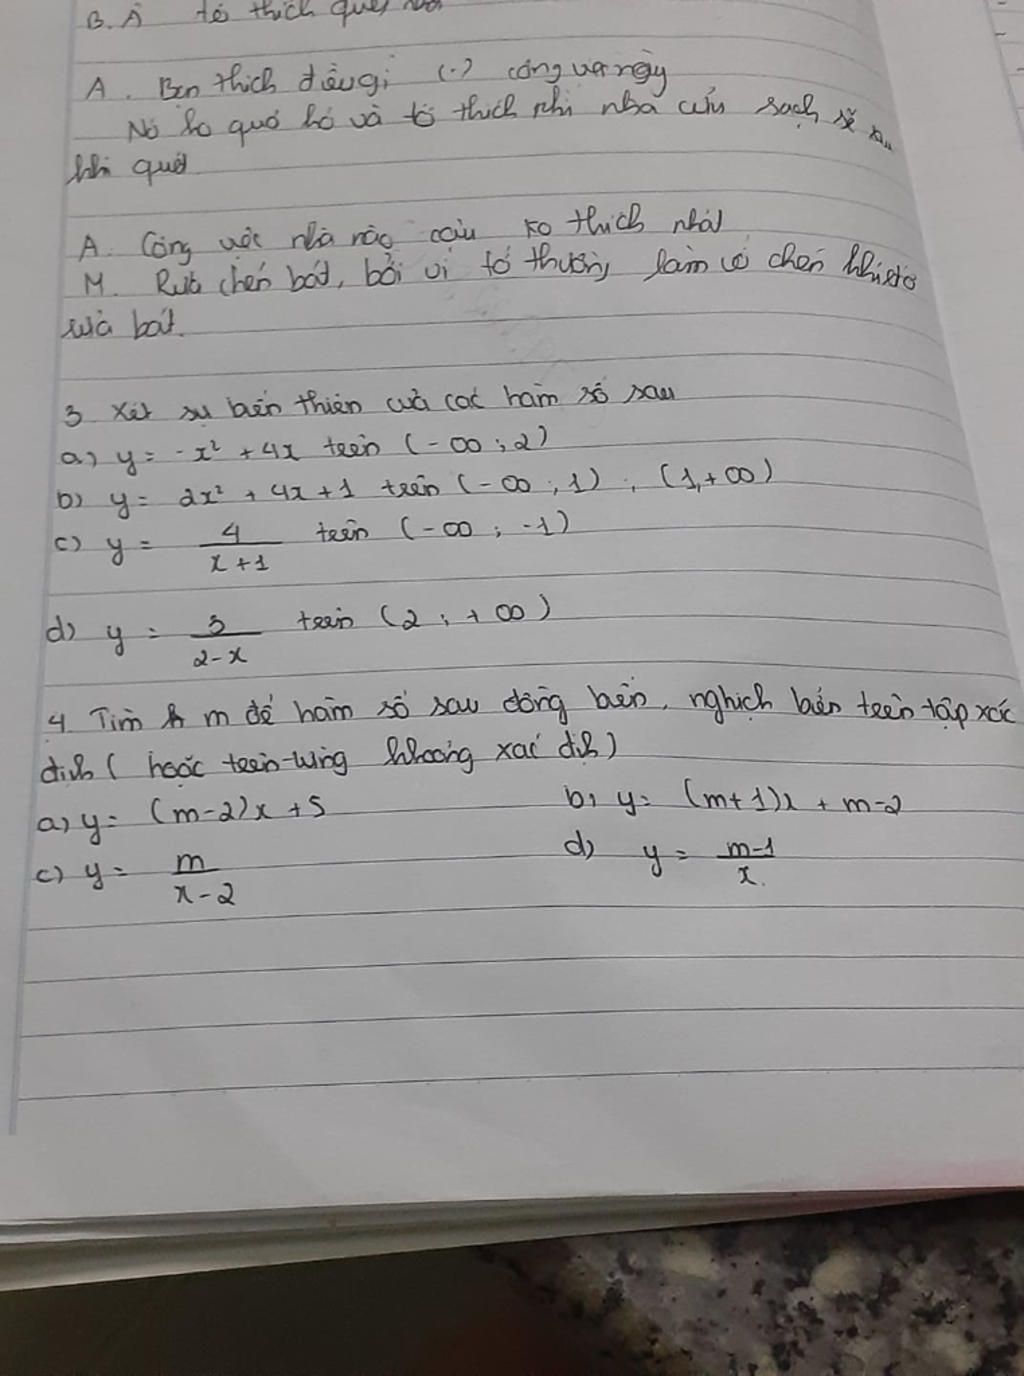 B. A tớ thích quét nhà
A. Bạn thích điều gì (-) công việc này
Nó ko quá khó và tớ thích khi nhà cửa sạch sẽ sau
khi quét
A. Công việc nhà nào cậu ko thích nhất
M. Rửa chén bát, bởi vì tớ thường làm vỡ chén khi tớ
rửa bát.
3 Xét sự biến thiên của các hàm số sau
a) y = -x² + 4x trên (-∞ ; 2)
b) y = 2x² + 4x + 1 trên (-∞ ; 1) , (1, +∞)
c) y = 4/(x+1) trên (-∞ ; -1)
d) y = 3/(2-x) trên (2 ; +∞)
4 Tìm m để hàm số sau đồng biến, nghịch biến trên tập xác
định ( hoặc trên từng khoảng xác định)
a) y = (m-2)x + 5 b) y = (m+1)x + m-2
c) y = m/(x-2) d) y = (m-1)/x